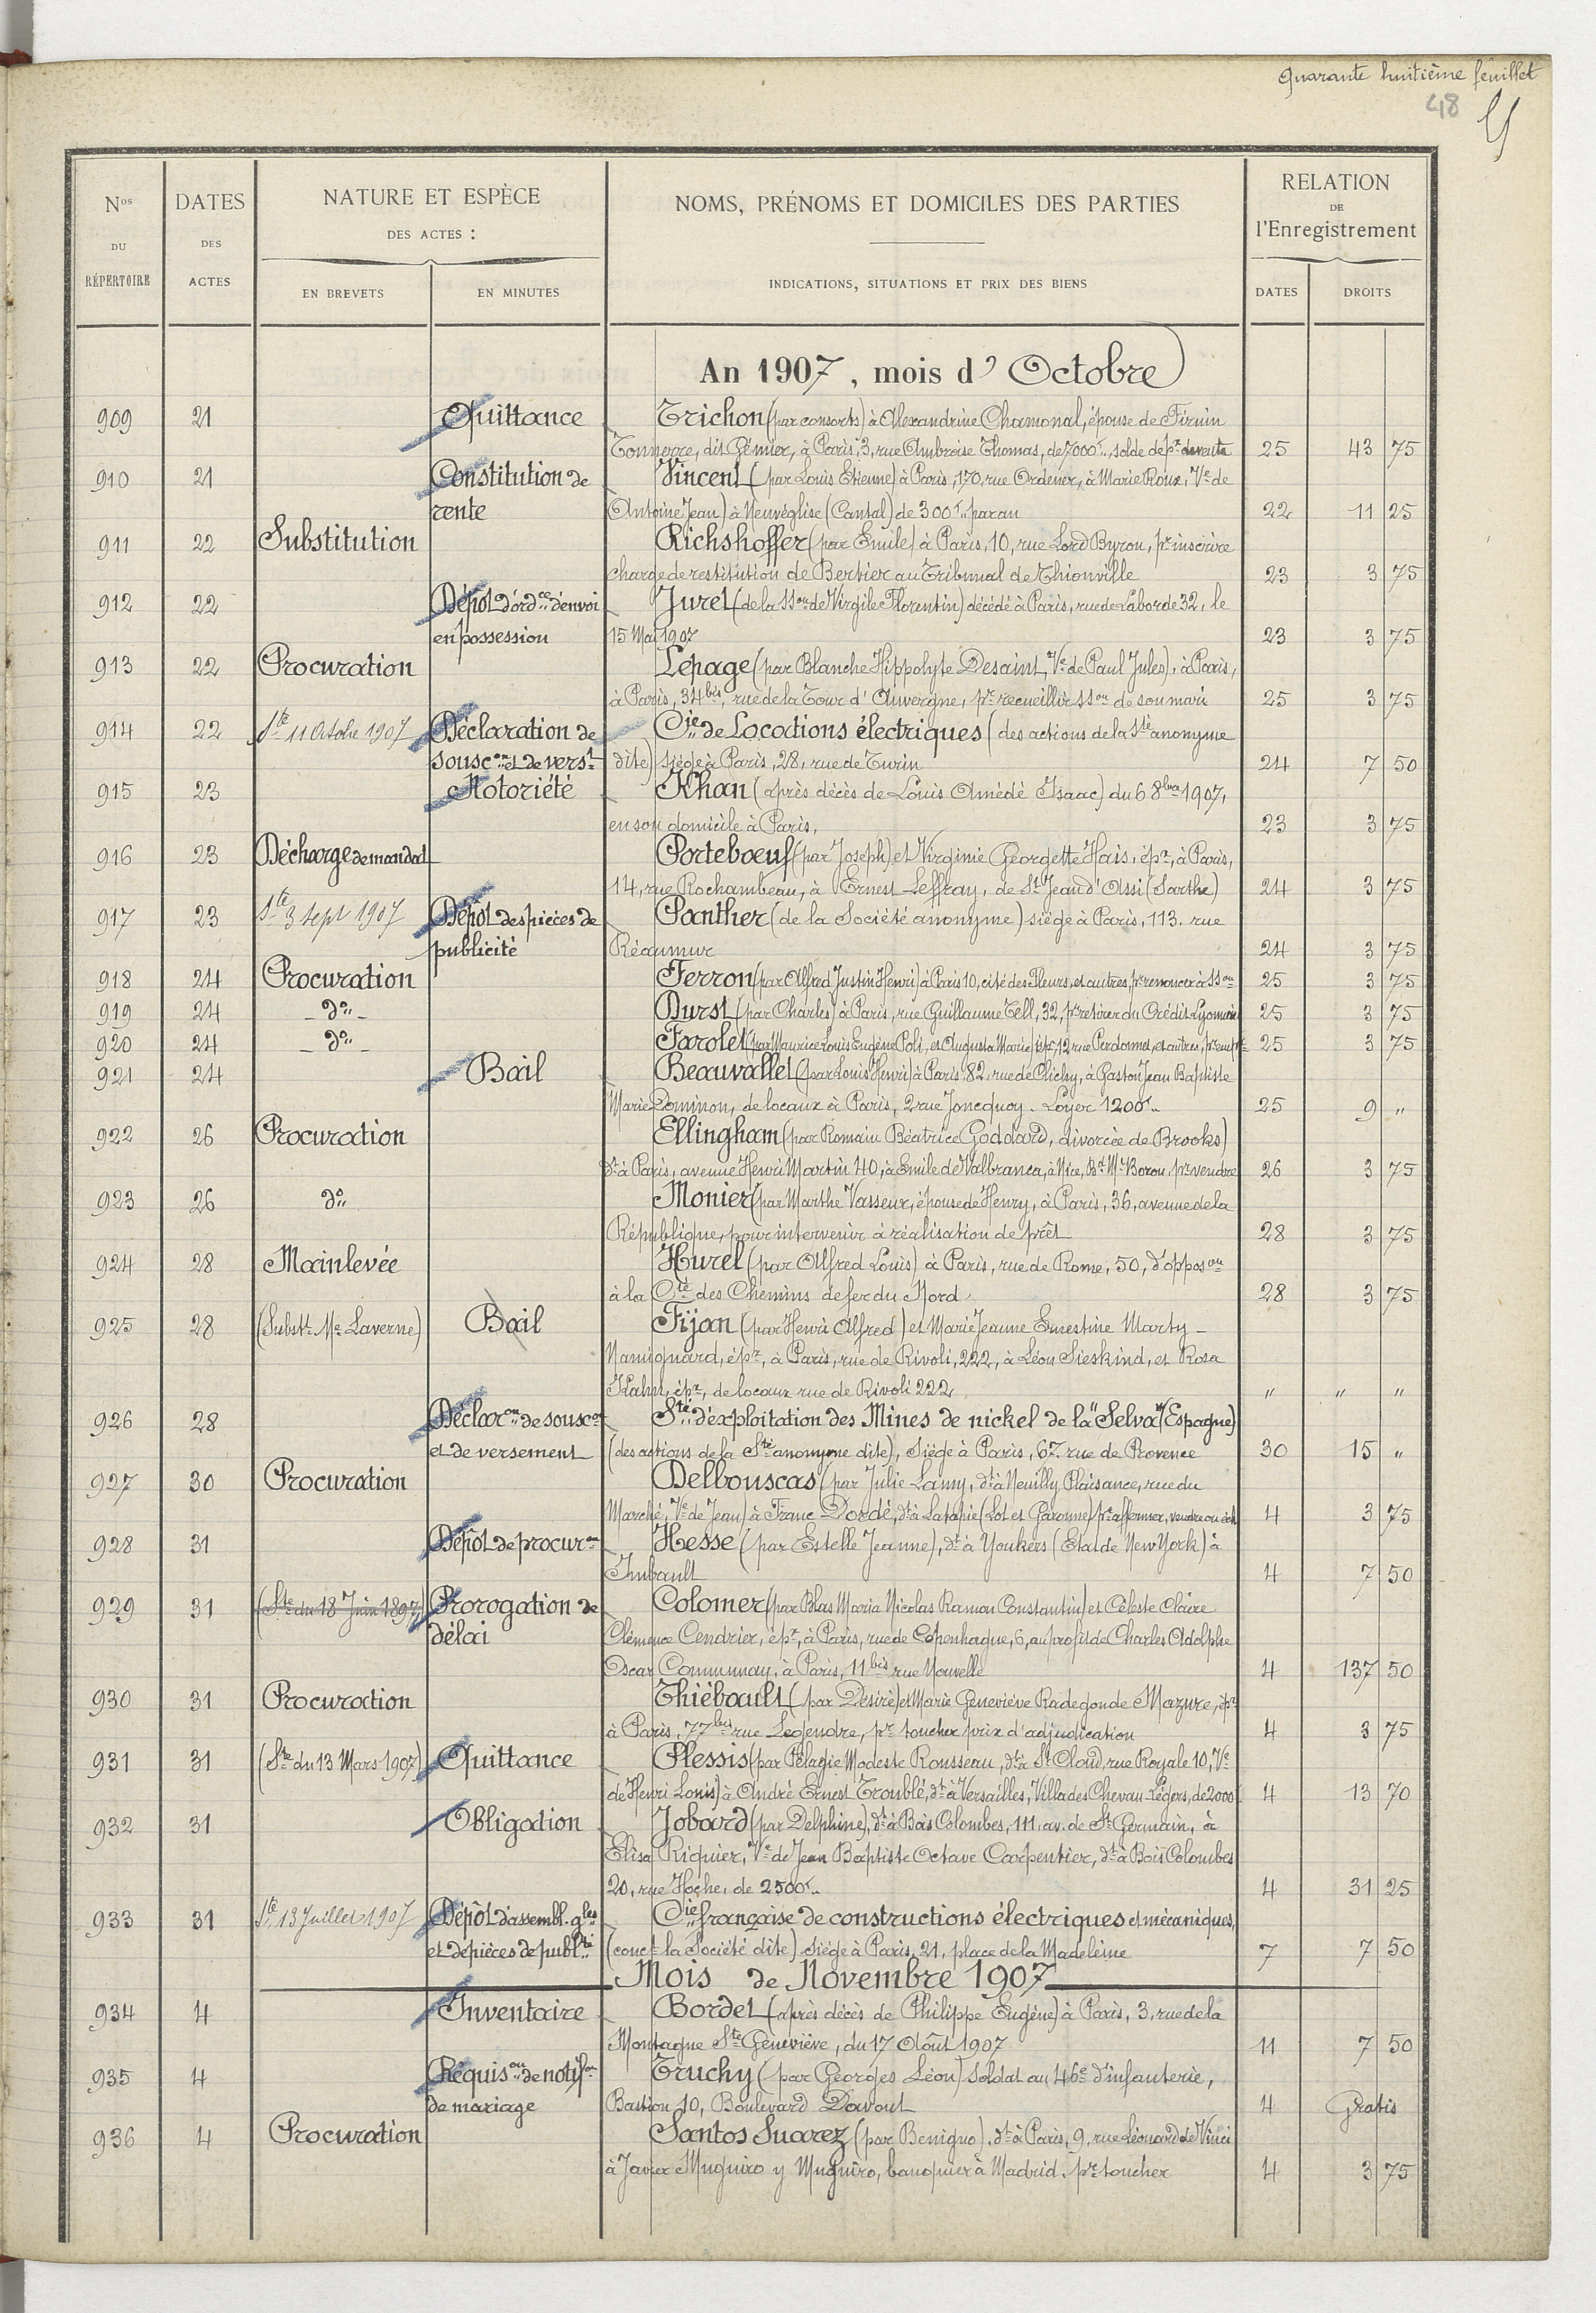 Quarante huitième feuillet
48
Nos DU RÉPERTOIRE
DATES DES ACTES
NATURE ET ESPÈCE DES ACTES :
EN BREVETS
EN MINUTES
NOMS, PRÉNOMS ET DOMICILES DES PARTIES
INDICATIONS, SITUATIONS ET PRIX DES BIENS
RELATION DE l'Enregistrement
DATES
DROITS
An 1907, mois d'Octobre
909 21 Quittance Trichon (par consorts) à Alexandrine Chamonal, épouse de Firmin
Tonnerre, dit Gémier, à Paris, 3, rue Ambroise Thomas, de 7000f, solde de px de vente 25 43 75
910 21 Constitution de Vincent (par Louis Etienne) à Paris, 170, rue Ordener, à Marie Roux, Ve de
rente Antoine Jean) à Neuvéglise (Cantal) de 300f par an 22 11 25
911 22 Substitution Richshoffer (par Emile) à Paris, 10, rue Lord Byron, pr inscrire
charge de restitution de Bertier au Tribunal de Thionville 23 3 75
912 22 Dépôt d'ordce d'envoi Juret (de la sson de Virgile Florentin) décédé à Paris, rue de Laborde 32, le
en possession 15 Mai 1907 23 3 75
913 22 Procuration Lepage (par Blanche Hippolyte Desaint, Ve de Paul Jules), à Paris,
à Paris, 34bis, rue de la Tour d'Auvergne, pr recueillir sson de son mari 25 3 75
914 22 Ste 11 Octobre 1907 Déclaration de Cie de Locations électriques (des actions de la Sté anonyme
souscon et de verst dite) siège à Paris, 28, rue de Turin 24 7 50
915 23 Notoriété Khan (après décès de Louis Amédé Isaac) du 6 8bre 1907,
en son domicile à Paris, 23 3 75
916 23 Décharge de mandat Porteboeuf (par Joseph) et Virginie Georgette Hais, épx, à Paris,
14, rue Rochambeau, à Ernest Leffray, de St Jean d'Assi (Sarthe) 24 3 75
917 23 Ste 3 Sept 1907 Dépôt des pièces de Panther (de la Société anonyme) siège à Paris, 113. rue
publicité Réaumur 24 3 75
918 24 Procuration Ferron (par Alfred Justin Henri) à Paris 10, cité des Fleurs, et autres, pr renoncer à sson 25 3 75
919 24 - do - Durst (par Charles) à Paris, rue Guillaume Tell, 32, pr retirer du Crédit Lyonnais 25 3 75
920 24 - do - Farolet (par Maurice Louis Eugène Poli, et Augusta Marie) épx, 12 rue Perdonnet, et autres, pr 25 3 75
921 24 Bail Beauvallet (par Louis Henri) à Paris, 82, rue de Clichy, à Gaston Jean Baptiste
Marie Dominon, de locaux à Paris, 2 rue Joncquoy. Loyer 1200f 25 9 "
922 26 Procuration Ellingham (par Romain Béatrice Goddard, divorcée de Brooks)
dt à Paris, avenue Henri Martin 40, à Emile de Valbranca, à Nice, Bd Mt Boron, pr vendre 26 3 75
923 26 do Monier (par Marthe Vasseur, épouse de Henry, à Paris, 36, avenue de la
République, pour intervenir à réalisation de prêt 28 3 75
924 28 Mainlevée Hurel (par Alfred Louis) à Paris, rue de Rome, 50, d'opposon
à la Cie des Chemins de fer du Nord 28 3 75
925 28 (Substt Me Laverne) Bail Fijan (par Henri Alfred) et Marie Jeanne Ernestine Marty-
Namignard, épx, à Paris, rue de Rivoli, 222, à Léon Sieskind, et Rosa
Kahn, épx, de locaux rue de Rivoli 222, " " "
926 28 Déclaron de souscon Sté d'exploitation des Mines de nickel de la "Selva" (Espagne)
et de versement (des actions de la Sté anonyme dite), Siège à Paris, 67. rue de Provence 30 15 "
927 30 Procuration Delbouscas (par Julie Lamy, dt à Neuilly Plaisance, rue du
Marché, Ve de Jean) à Franc Dordé, dt à Latapie (Lot et Garonne) pr affermer, vendre ou éch 4 3 75
928 31 Dépôt de procuron Hesse (par Estelle Jeanne), dt à Yonkers (Etat de New York) à
Imbault 4 7 50
929 31 (Ste du 18 Juin 1897) Prorogation de Colomer (par Blas Maria Nicolas Ramon Constantin) et Céleste Claire
délai Clémence Cendrier, épx, à Paris, rue de Copenhague, 6, au profit de Charles Adolphe
Oscar Communay, à Paris, 11bis rue Nouvelle 4 137 50
930 31 Procuration Thiébault (par Désiré) et Marie Geneviève Radegonde Mazure, épx
à Paris, 77bis rue Legendre, pr toucher prix d'adjudication 4 3 75
931 31 (Ste du 13 Mars 1907) Quittance Plessis (par Pélagie Modeste Rousseau, dt à St Cloud, rue Royale 10, Ve
de Henri Louis) à André Ernest Troublé, dt à Versailles, Villa des Chevau-Légers, de 2000f 4 13 70
932 31 Obligation Jobard (par Delphine), dt à Bois Colombes, 111. av. de St Germain, à
Elisa Riquier, Ve de Jean Baptiste Octave Carpentier, dt à Bois Colombes
20, rue Hoche, de 2500f 4 31 25
933 31 Ste 13 Juillet 1907 Dépôt d'assembl. gles Cie française de constructions électriques et mécaniques,
et de pièces de publté (conct la Société dite) siège à Paris, 21, place de la Madeleine 7 7 50
Mois de Novembre 1907
934 4 Inventaire Bordet (après décès de Philippe Eugène) à Paris, 3, rue de la
Montagne Ste Geneviève, du 17 Août 1907 11 7 50
935 4 Réquison de notifon Truchy (par Georges Léon) soldat au 46e d'infanterie,
de mariage Bastion 10, Boulevard Davout 4 Gratis
936 4 Procuration Santos Suarez (par Benigno), dt à Paris, 9, rue Léonard de Vinci
à Javier Muguiro y Muguiro, banquier à Madrid, pr toucher 4 3 75